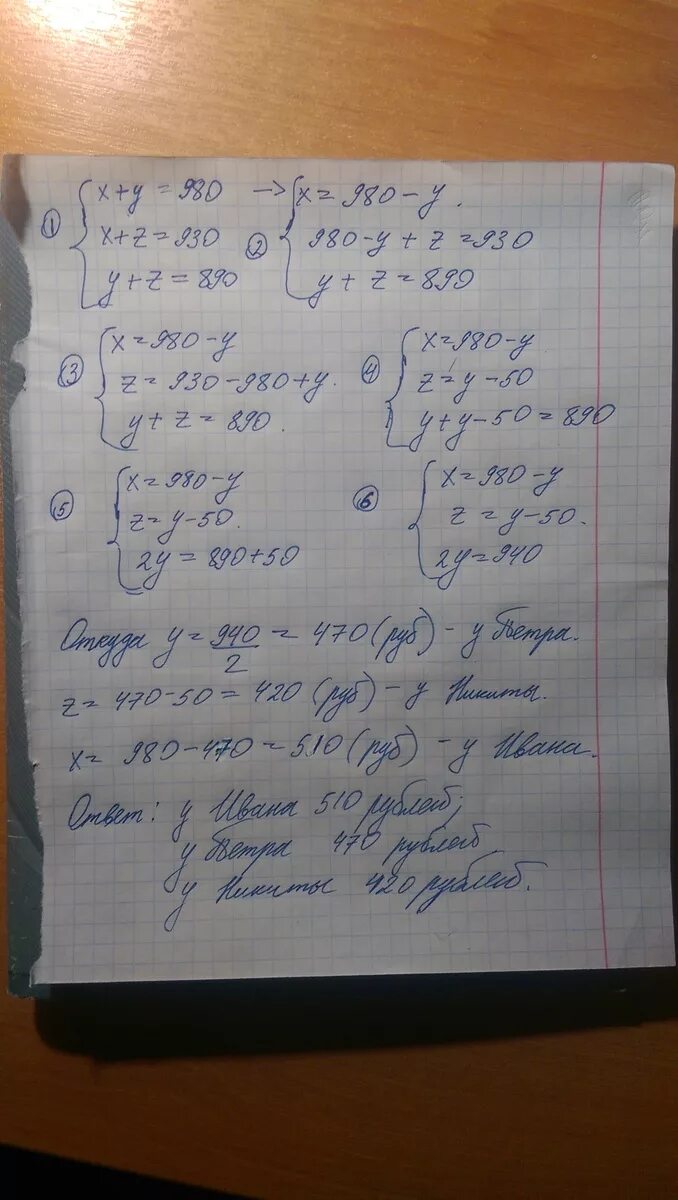 ① { x+y=980 -> { x=980-y.
x+z=930 ② 980-y+z=930
y+z=890 y+z=890
③ { x=980-y ④ { x=980-y
z=930-980+y. z=y-50
y+z=890. y+y-50=890
⑤ { x=980-y ⑥ { x=980-y
z=y-50. z=y-50.
2y=890+50 2y=940
Откуда y=940/2=470(руб)-у Петра.
z=470-50=420(руб)-у Никиты.
x=980-470=510(руб)-у Ивана.
Ответ: у Ивана 510 рублей;
у Петра 470 рублей
у Никиты 420 рублей.